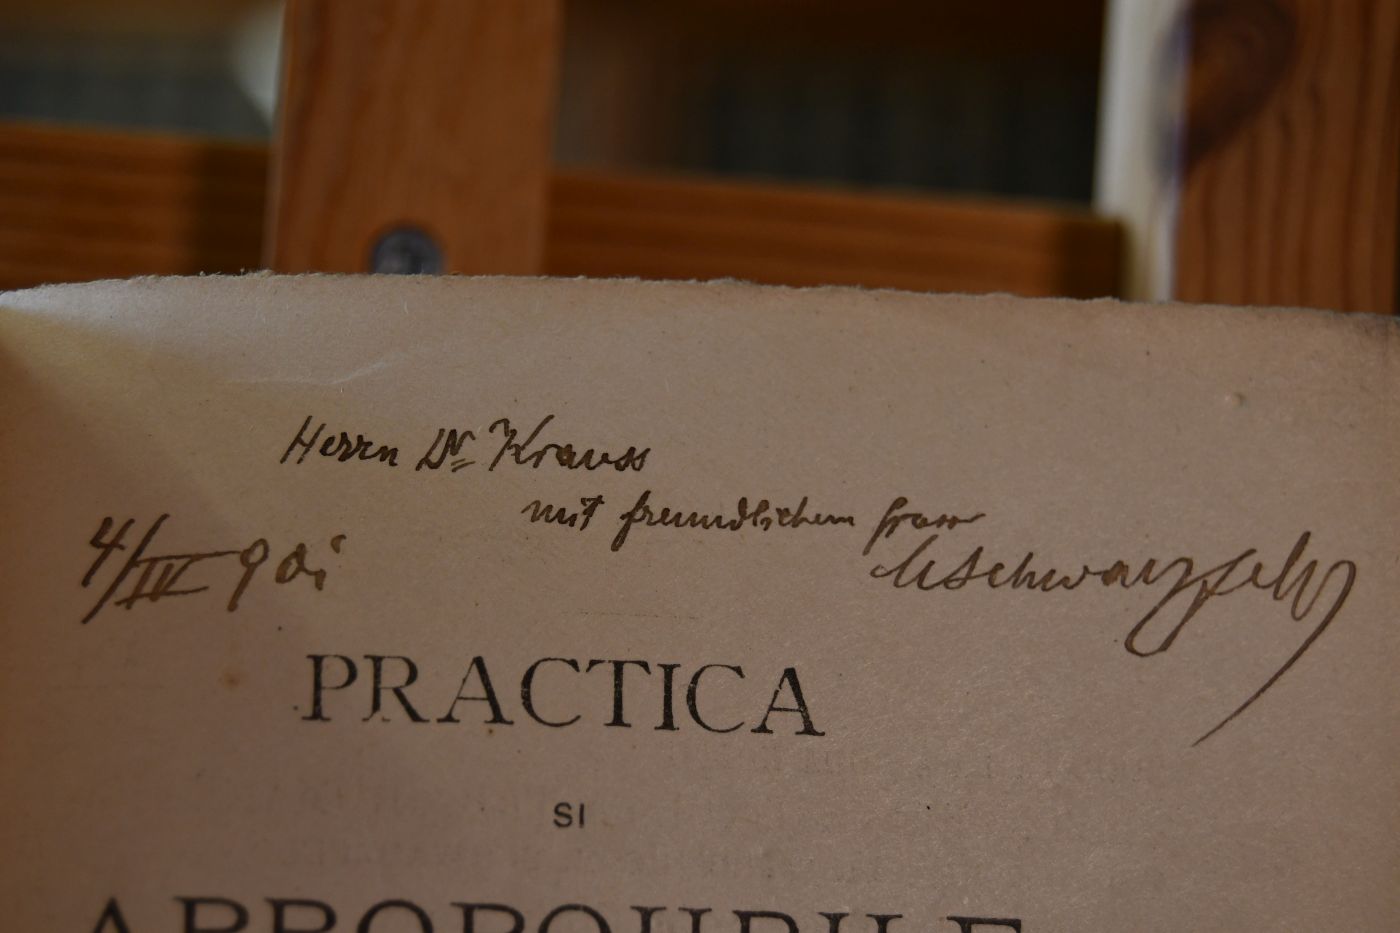 Herrn Dr. Krauss
mit freundlichem Gruss
4/IV 901
MSchwarzfeld
PRACTICA
SI
APROPOURILE